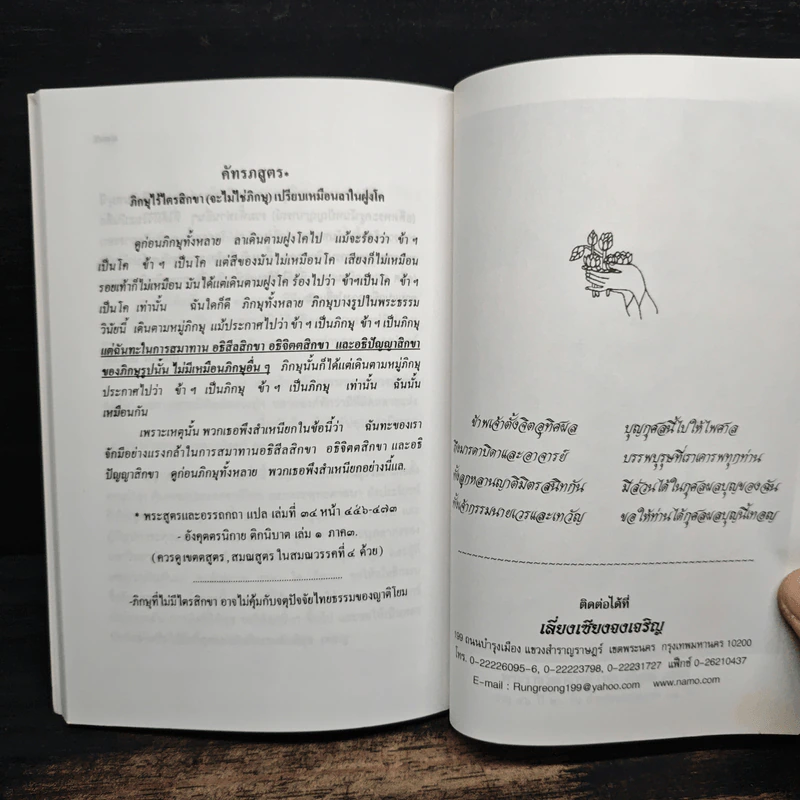 คัทรภสูตร*
ภิกษุไร้ไตรสิกขา (จะไม่ใช่ภิกษุ) เปรียบเหมือนลาในฝูงโค
ดูก่อนภิกษุทั้งหลาย ลาเดินตามฝูงโคไป แม้จะร้องว่า ข้า ฯ
เป็นโค ข้า ฯ เป็นโค แต่สีของมันไม่เหมือนโค เสียงก็ไม่เหมือน
รอยเท้าก็ไม่เหมือน มันได้แต่เดินตามฝูงโค ร้องไปว่า ข้าฯเป็นโค ข้า ฯ
เป็นโค เท่านั้น ฉันใดก็ดี ภิกษุทั้งหลาย ภิกษุบางรูปในพระธรรม
วินัยนี้ เดินตามหมู่ภิกษุ แม้ประกาศไปว่า ข้า ฯ เป็นภิกษุ ข้า ฯ เป็นภิกษุ
แต่ฉันทะในการสมาทาน อธิสีลสิกขา อธิจิตตสิกขา และอธิปัญญาสิกขา
ของภิกษุรูปนั้น ไม่มีเหมือนภิกษุอื่น ๆ ภิกษุนั้นก็ได้แต่เดินตามหมู่ภิกษุ
ประกาศไปว่า ข้า ฯ เป็นภิกษุ ข้า ฯ เป็นภิกษุ เท่านั้น ฉันนั้น
เหมือนกัน
เพราะเหตุนั้น พวกเธอพึงสำเหนียกในข้อนี้ว่า ฉันทะของเรา
จักมีอย่างแรงกล้าในการสมาทานอธิสีลสิกขา อธิจิตตสิกขา และอธิ
ปัญญาสิกขา ดูก่อนภิกษุทั้งหลาย พวกเธอพึงสำเหนียกอย่างนี้แล.
* พระสูตรและอรรถกถา แปล เล่มที่ ๓๔ หน้า ๔๕๖-๔๗๓
- อังคุตตรนิกาย ติกนิบาต เล่ม ๑ ภาค๓.
(ควรดูเขตตสูตร, สมณสูตร ในสมณวรรคที่ ๔ ด้วย)
-ภิกษุที่ไม่มีไตรสิกขา อาจไม่คุ้มกับจตุปัจจัยไทยธรรมของญาติโยม
ข้าพเจ้าตั้งจิตอุทิศผล บุญกุศลนี้ไปให้ไพศาล
ถึงมารดาบิดาและอาจารย์ บรรพบุรุษที่เราเคารพทุกท่าน
ทั้งลูกหลานญาติมิตรสนิทกัน มีส่วนได้ในกุศลผลบุญของฉัน
ทั้งเจ้ากรรมนายเวรและเทวัญ ขอให้ท่านได้กุศลผลบุญนี้เทอญ
ติดต่อได้ที่
เลี่ยงเซียงจงเจริญ
199 ถนนบำรุงเมือง แขวงสำราญราษฎร์ เขตพระนคร กรุงเทพมหานคร 10200
โทร. 0-22226095-6, 0-22223798, 0-22231727 แฟ็กซ์ 0-26210437
E-mail : Rungreong199@yahoo.com www.namo.com